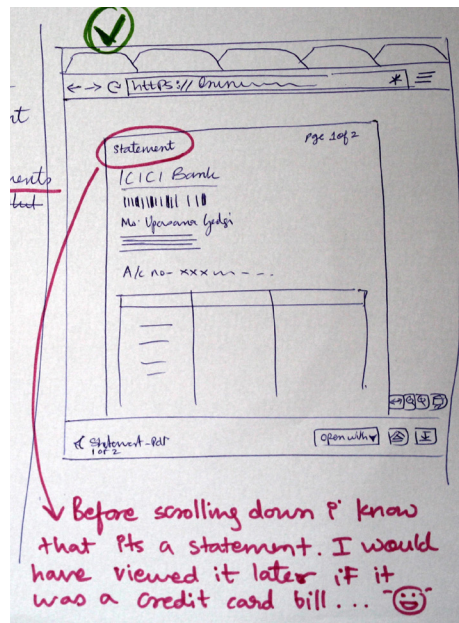 nt
ments
but
https://
Statement
Page 1 of 2
ICICI Bank
Ms. Upasana
A/c no- xxx
Statement-Pdf
1 of 2
Open with
Before scrolling down i know
that its a statement. I would
have viewed it later if it
was a credit card bill...